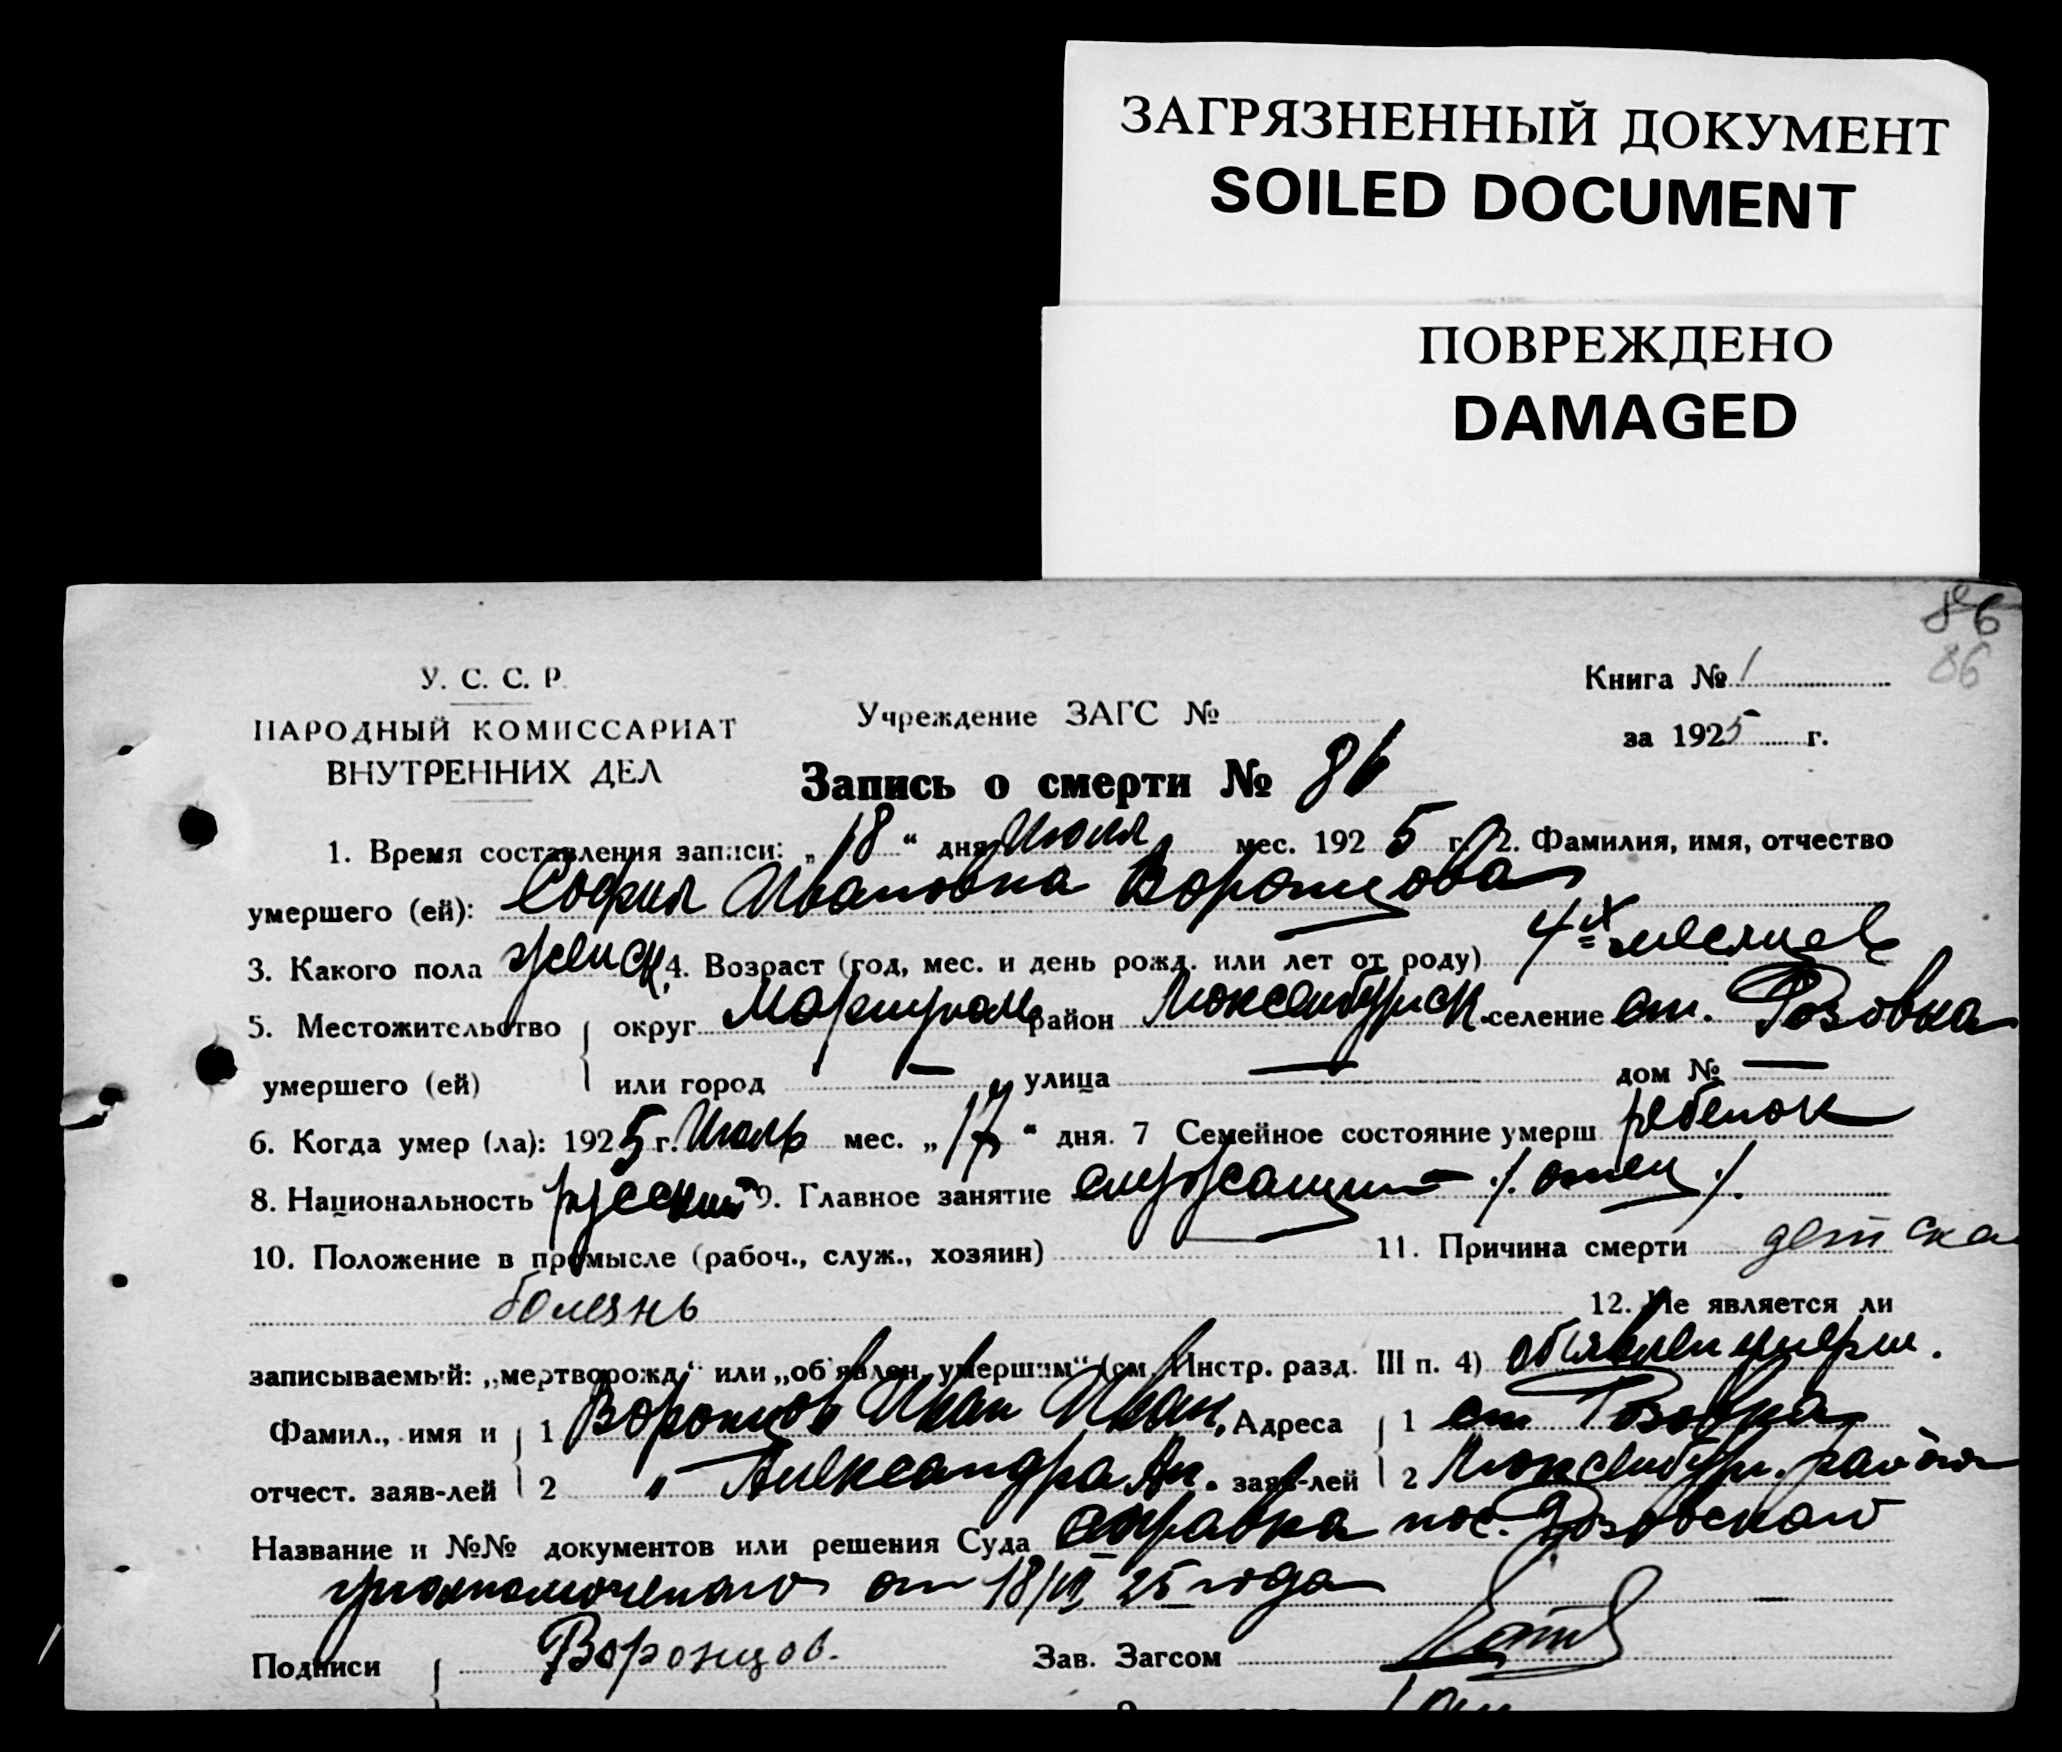 ЗАГРЯЗНЕННЫЙ ДОКУМЕНТ
SOILED DOCUMENT
ПОВРЕЖДЕНО
DAMAGED
86
86
У. С. С. Р.
НАРОДНЫЙ КОМИССАРИАТ
ВНУТРЕННИХ ДЕЛ
Учреждение ЗАГС №
Книга № 1
за 1925 г.
Запись о смерти № 86
1. Время составления записи: „18“ дня Июля мес. 1925 г. 2. Фамилия, имя, отчество
умершего (ей): София Ивановна Воронцова
3. Какого пола женск. 4. Возраст (год, мес. и день рожд. или лет от роду) 4х месяцев
5. Местожительство округ Мариуполь район Люксембургск. селение ст. Розовка
умершего (ей) или город — улица — дом № —
6. Когда умер (ла): 1925 г. Июль мес. „17“ дня. 7 Семейное состояние умерш ребенок
8. Национальность русский 9. Главное занятие служащий — /. отец /.
10. Положение в промысле (рабоч., служ., хозяин) 11. Причина смерти детска
болезнь 12. Не является ли
записываемый: „мертворожд“ или „об'явлен. умершим“ (см. Инстр. разд. III п. 4) объявлен умерш.
Фамил., имя и 1 Воронцов Иван Иван. Адреса 1 ст Розовка
отчест. заяв-лей 2 „ Александра Ан. заяв-лей 2 Люксембург. района
Название и №№ документов или решения Суда справка пос. Розовского
уполномоченого от 18/VII 25 года
Подписи Воронцов. Зав. Загсом